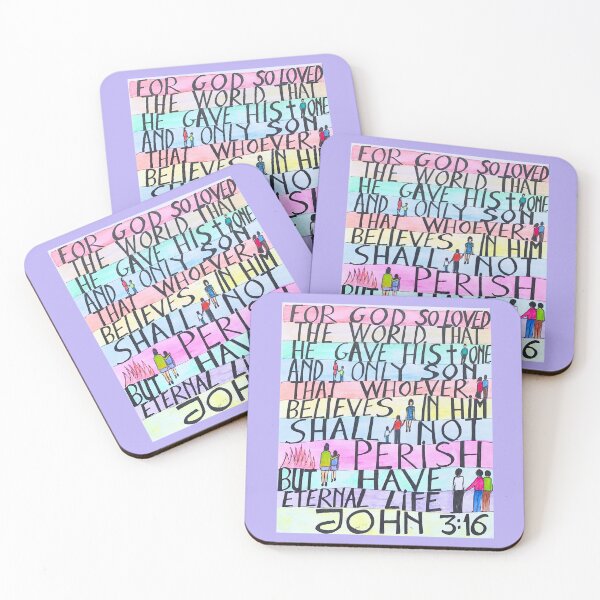 FOR GOD SO LOVED
THE WORLD THAT
HE GAVE HIS ONE
AND ONLY SON
THAT WHOEVER
BELIEVES IN HIM
NOT
FOR GOD SO LOVED
THE WORLD THAT
HE GAVE HIS ONE
AND ONLY SON
THAT WHOEVER
BELIEVES IN HIM
SHALL NOT
PERISH
BUT
16
FOR GOD SO LOVED
THE WORLD THAT
HE GAVE HIS ONE
AND ONLY SON
THAT WHOEVER
BELIEVES IN HIM
SHALL NOT
PERISH
BUT HAVE
ETERNAL LIFE
JOHN
FOR GOD SO LOVED
THE WORLD THAT
HE GAVE HIS ONE
AND ONLY SON
THAT WHOEVER
BELIEVES IN HIM
SHALL NOT
PERISH
BUT HAVE
ETERNAL LIFE
JOHN 3:16